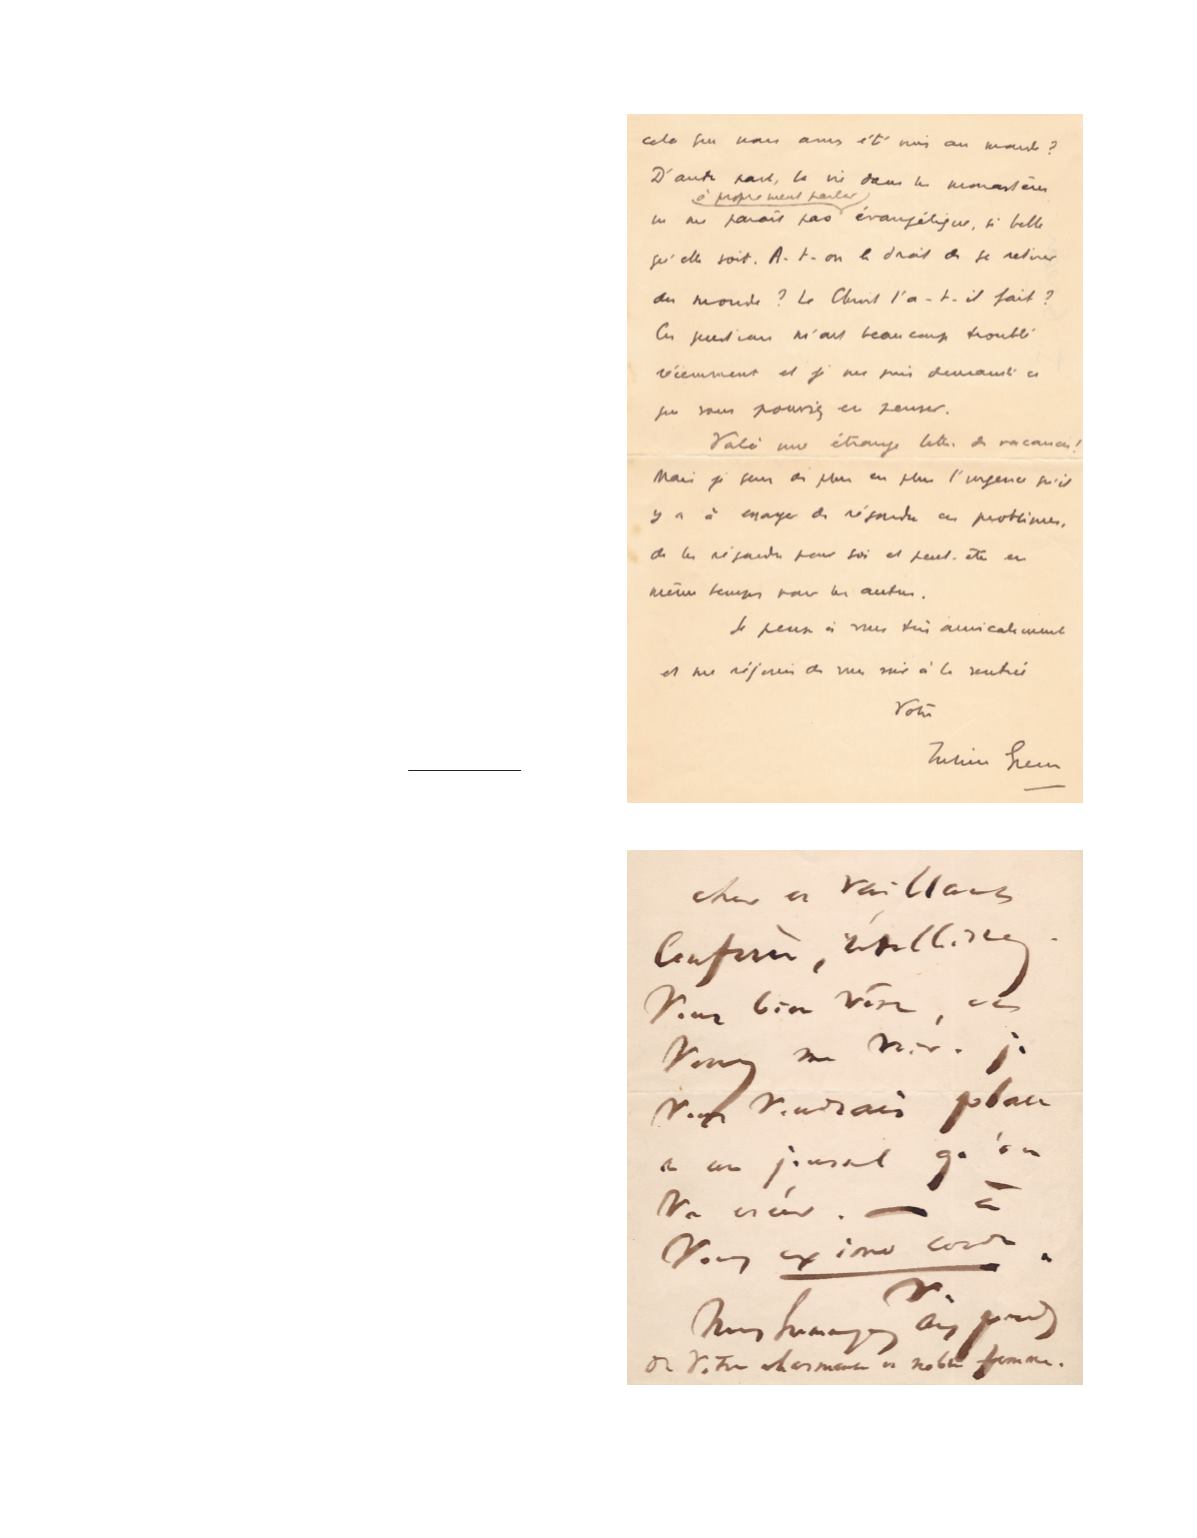 cela que nous avons été mis au monde ?
D'autre part, la vie dans les monastères
à proprement parler
ne me paraît pas évangélique, si belle
qu'elle soit. A-t-on le droit de se retirer
du monde ? Le Christ l'a-t-il fait ?
Ces questions m'ont beaucoup troublé
récemment et je me suis demandé ce
que vous pouviez en penser.
Voilà une étrange lettre de vacances !
Mais je sens de plus en plus l'urgence qu'il
y a à essayer de résoudre ces problèmes,
de les résoudre pour soi et peut-être en
même temps pour les autres.
Je pense à vous très amicalement
et me réjouis de vous voir à la rentrée
Votre
Julien Green
cher et vaillant
Confrère,
Vous bien
Venez me voir. je
Vous Voudrais
a un journal qu'on
Va créer. — à
Vous ex imo corde.
V.
Mes hommages aux pieds
de Votre charmante et noble femme.